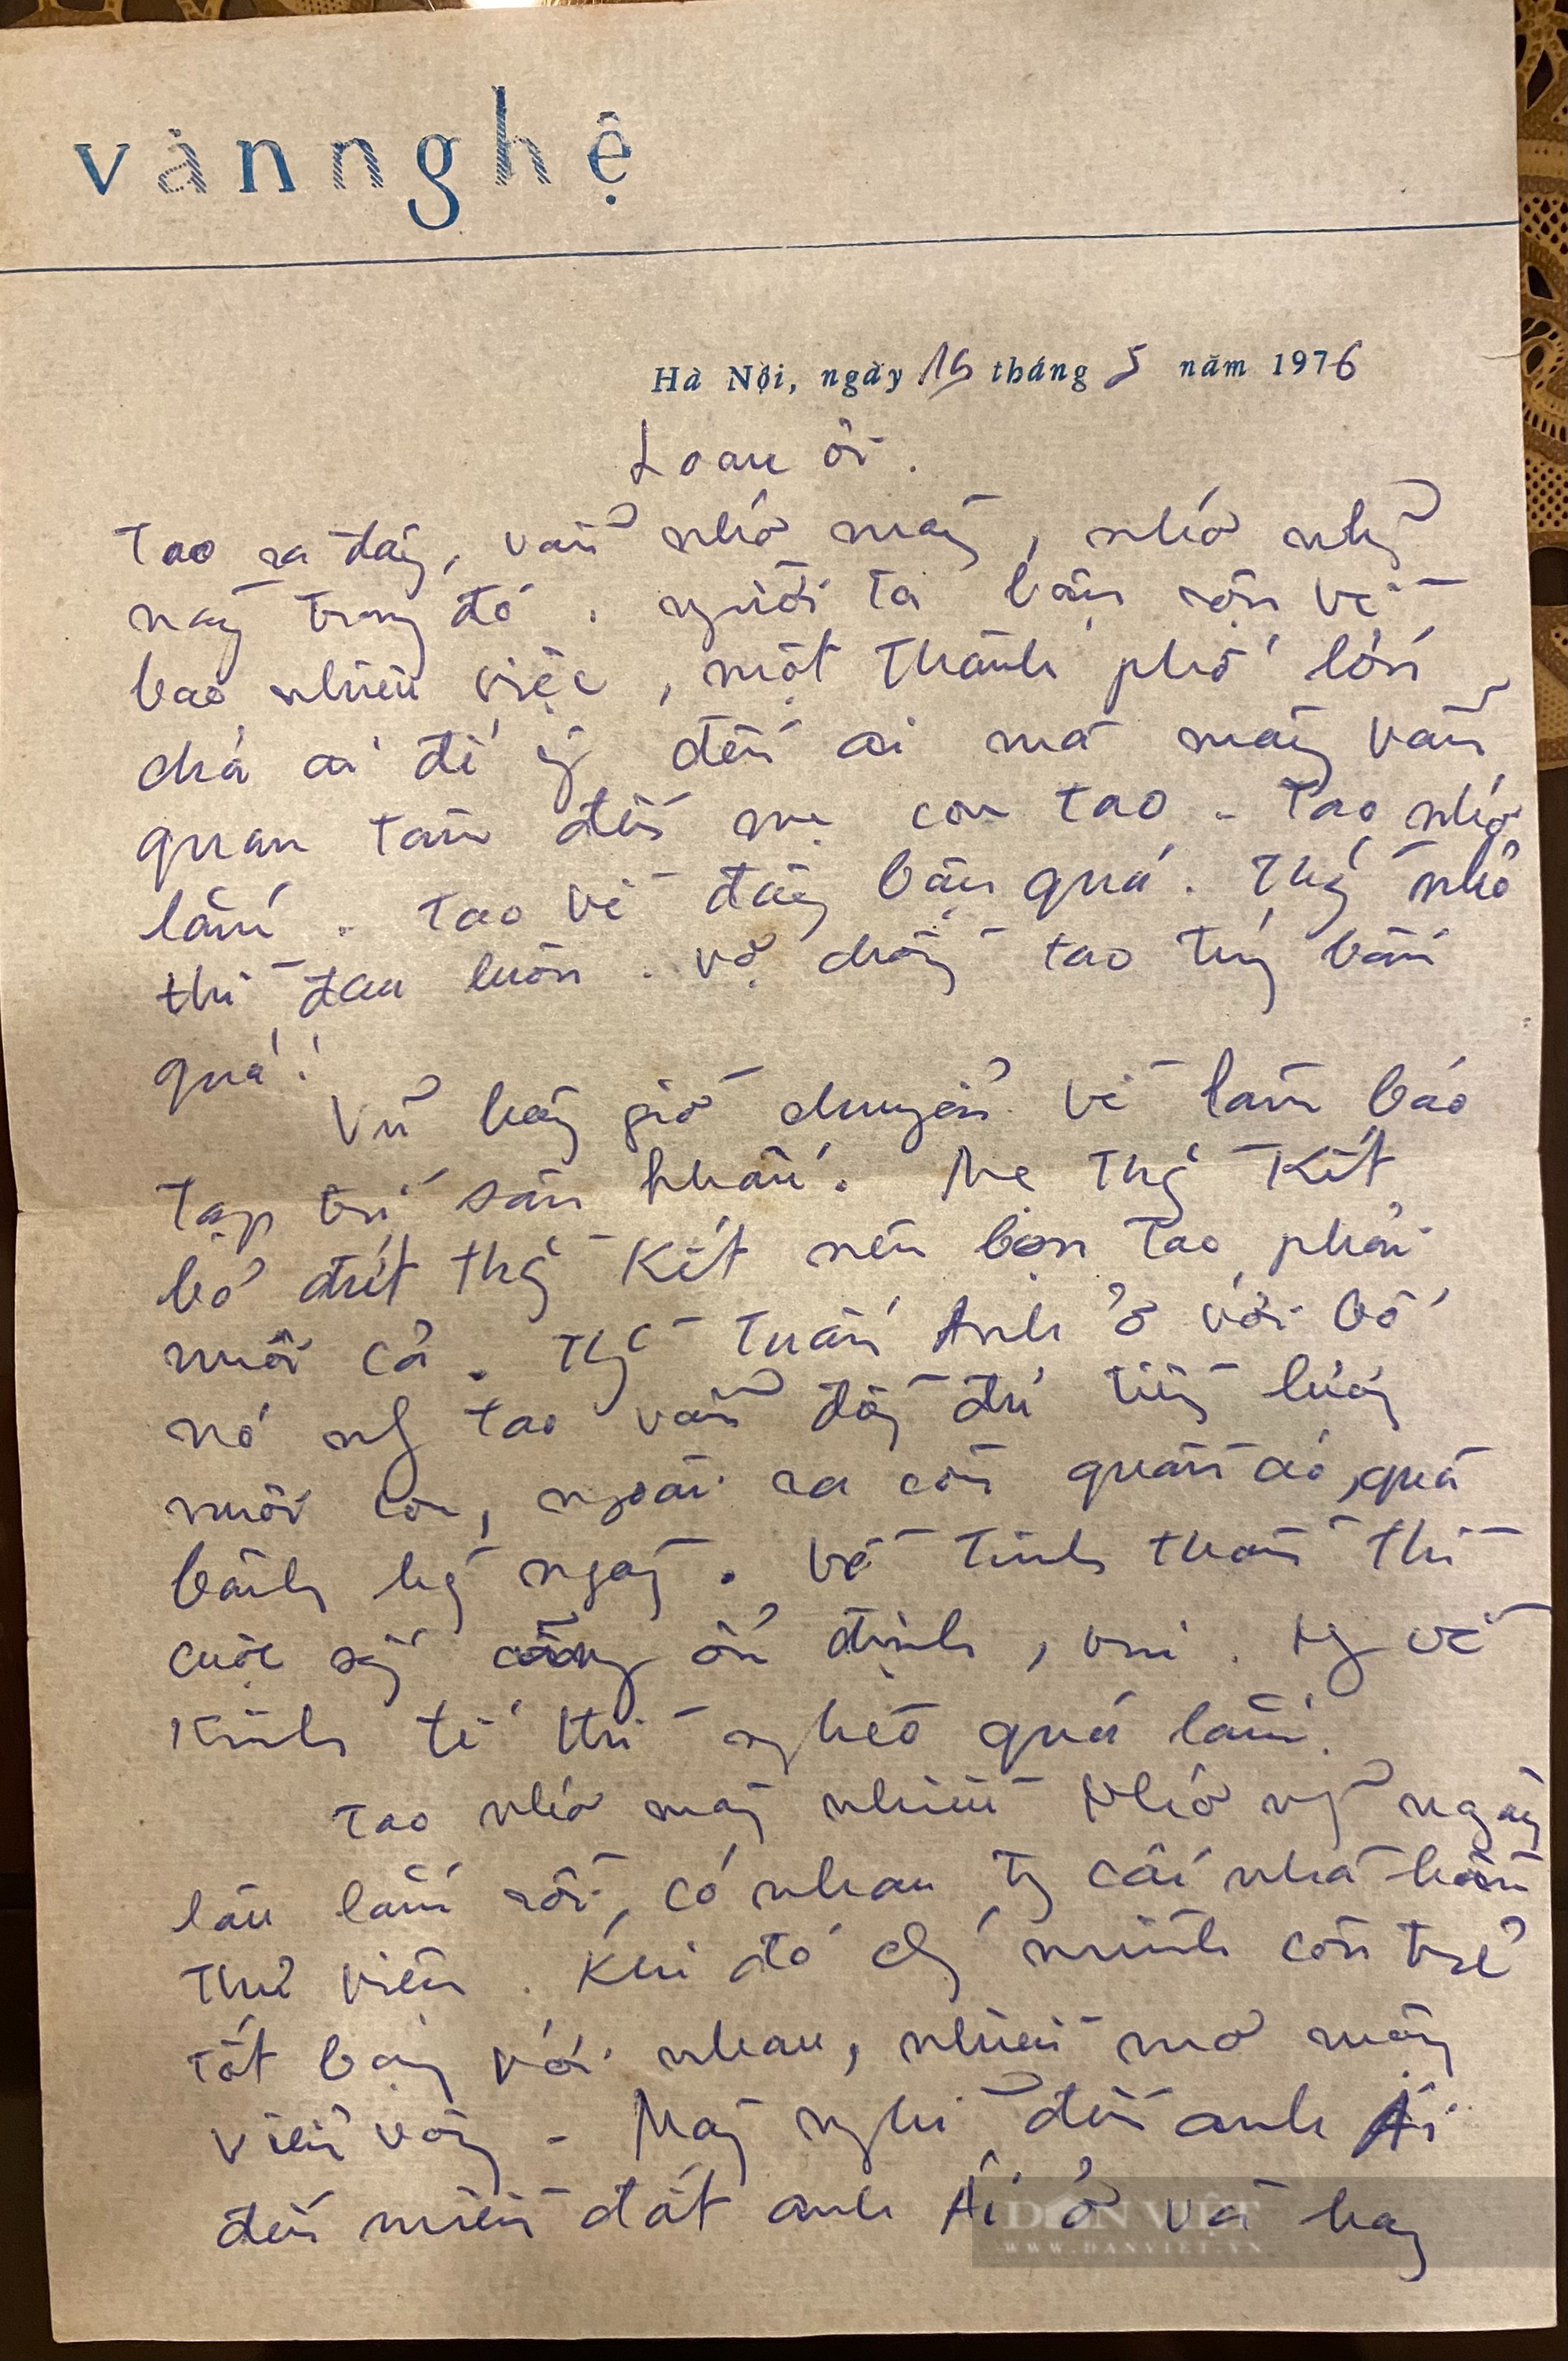 văn nghệ
Hà Nội, ngày 16 tháng 5 năm 1976
Loan ơi.
Tao ra đây, vẫn nhớ mày, nhớ những
ngày trong đó. người ta bận rộn về
bao nhiêu việc, một thành phố lớn
chả ai để ý đến ai mà mày vẫn
quan tâm đến mẹ con tao. Tao nhớ
lắm. Tao về đây bận quá. Thằng nhỏ
thì đau luôn. vợ chồng tao túng bấn
quá!
Vũ bây giờ chuyển về làm báo
Tạp chí sân khấu. Mẹ thằng Kít
bỏ đứt thằng Kít nên bọn tao phải
nuôi cả. Thằng Tuấn Anh ở với bố
nó nhg tao vẫn đóng đủ tiền
nuôi con, ngoài ra còn quần áo, quà
bánh hàng ngày. Về tinh thần thì
cuộc sống cũng ổn định, vui. Nhg về
Kinh tế thì nghèo quá lắm.
Tao nhớ mày nhiều Nhớ những ngày
lâu lắm rồi, có nhau trong cái nhà hầm
Thư viện. Khi đó chúng mình còn trẻ
tốt bụng với nhau, nhiều mơ mộng
viển vông. Mày nghĩ đến anh Ái
đến miền đất anh Ái ở và hay
DÂN VIỆT
WWW.DANVIET.VN